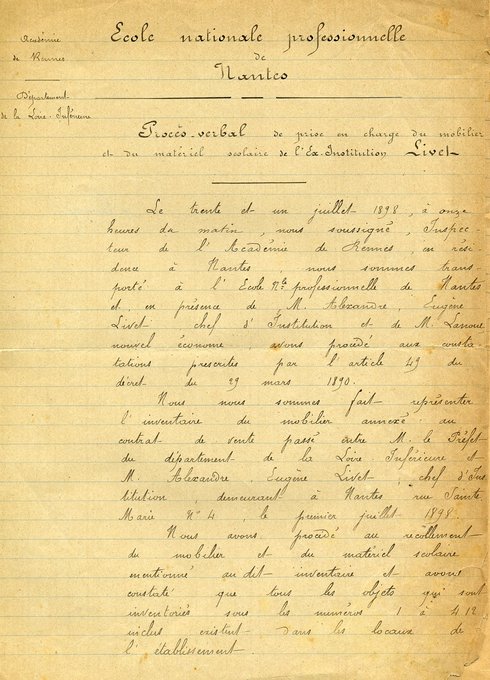 Ecole nationale professionnelle
de
Nantes
Académie
de Rennes
Département
de la Loire-Inférieure
Procès-verbal de prise en charge du mobilier
et du matériel scolaire de l'Ex-Institution Livet
Le trente et un juillet 1898, à onze
heures du matin, nous soussigné, Inspec-
teur de l'Académie de Rennes, en rési-
dence à Nantes, nous sommes trans-
porté à l'Ecole Nle professionnelle de Nantes
et, en présence de M. Alexandre, Eugène
Livet chef d'Institution et de M. Lanoue
nouvel économe, avons procédé aux consta-
tations prescrites par l'article 49 du
décret du 29 mars 1890.
Nous nous sommes fait représenter
l'inventaire du mobilier annexé au
contrat de vente passé entre M. le Préfet
du département de la Loire Inférieure et
M. Alexandre, Eugène Livet, chef d'Ins
titution, demeurant à Nantes rue Sainte
Marie N° 4, le premier juillet 1898.
Nous avons procédé au récollement
du mobilier et du matériel scolaire
mentionné au dit inventaire et avons
constaté que tous les objets qui sont
inventoriés sous les numéros 1 à 412
inclus existent dans les locaux de
l'établissement.